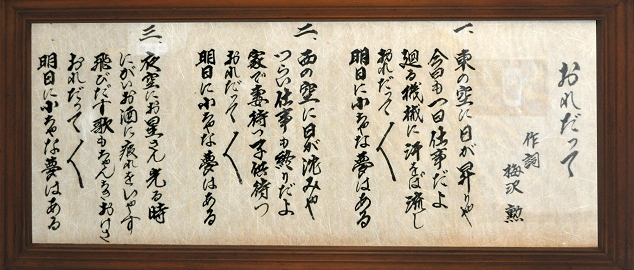 おれだって
作詞 梅沢 勲
一、東の空に日が昇りゃ
今日も一日仕事だよ
廻る機械に汗をば流し
おれだって〱
明日に小ちゃな夢はある
二、西の空に日が沈みゃ
つらい仕事も終りだよ
家で妻待つ子供待つ
おれだって〱
明日に小ちゃな夢はある
三、夜空にお星さん光る時
にがいお酒に疲れをいやす
飛びだす歌もちゃんちきおけさ
おれだって〱
明日に小ちゃな夢はある